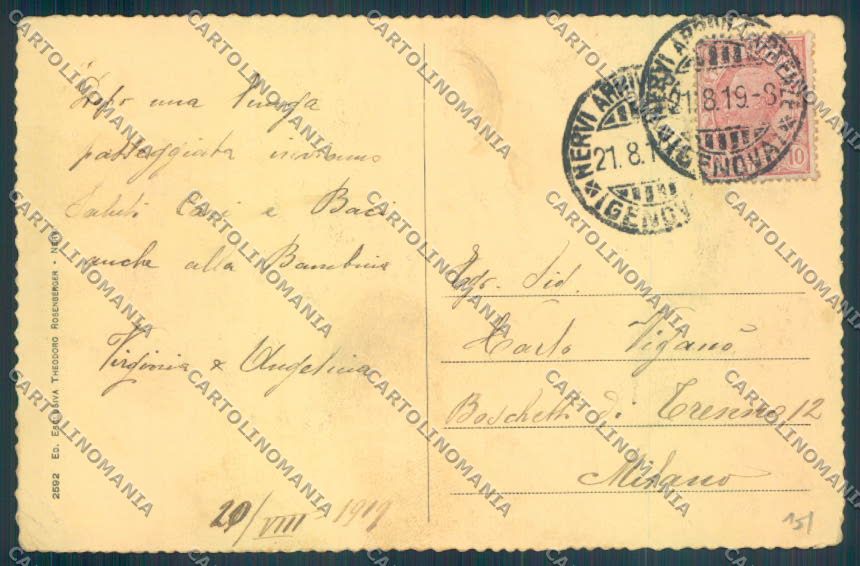 Dopo una lunga
passeggiata inviamo
Saluti Cari e Baci
anche alla Bambina
Virginia & Angelina
20/VIII 1919
2592 ED. ESCLUSIVA THEODORO ROSENBERGER - NERVI
NERVI ARRIVI
21.8.1
(GENOV
NERVI ARRIVI E PARTENZE
21.8.19-8
(GENOVA)
10
Egr. Sid.
Carlo Viganò
Boschetti di Trenno 12
Milano
151
CARTOLINOMANIA